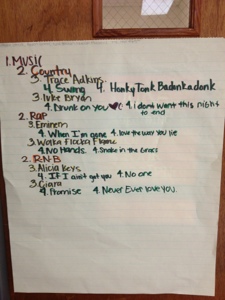 1. Music
2. Country
3. Trace Adkins
4. Swing 4. Honky Tonk Badonkadonk
3. luke Bryan
4. Drunk on you 4. i dont want this night to end
2. Rap
3. Eminem
4. When I'm gone 4. love the way you lie
3. Waka Flocka Flame
4. No Hands 4. Snake in the Grass
2. R-N-B
3. Alicia Keys
4. If I ain't got you 4. No one
3. Ciara
4. Promise 4. Never Ever love you.